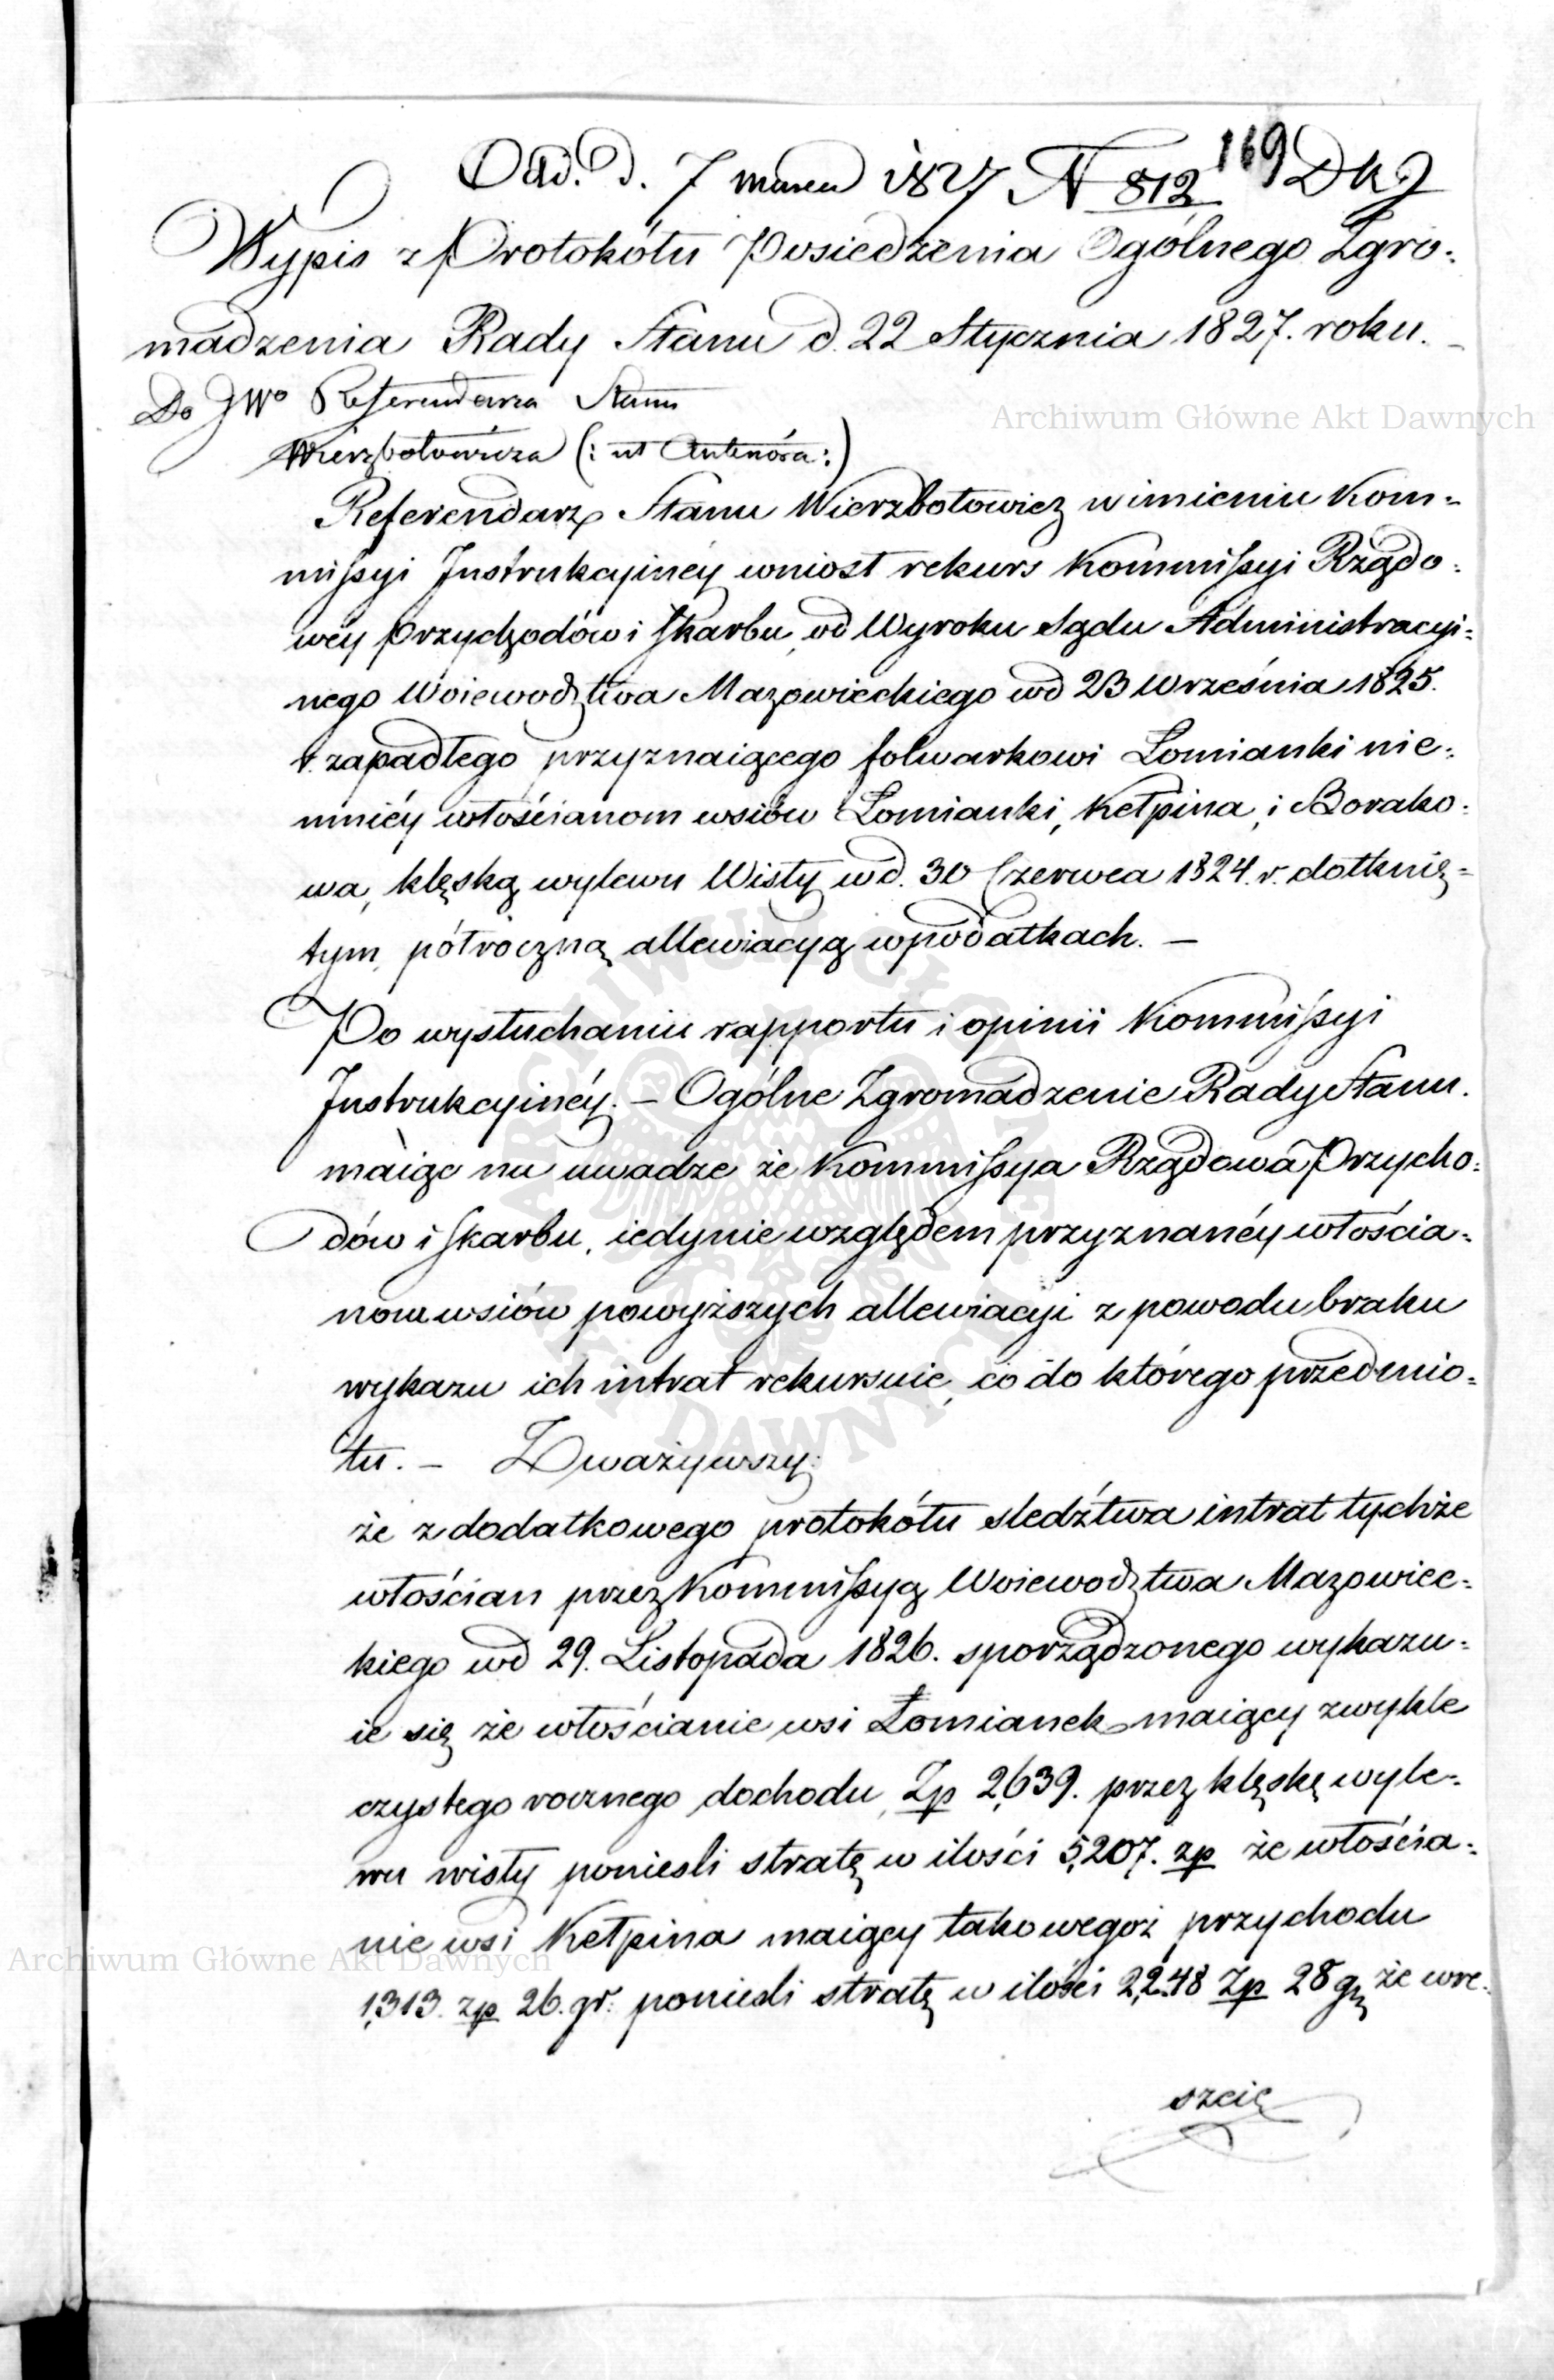 Odd. D. 7 marca 1827 N 812 169 DKJ
Wypis z Protokółu Posiedzenia Ogólnego Zgro:
madzenia Rady Stanu d. 22 Stycznia 1827. roku. –
Do JWo Referendarza Stanu
Wierzbołowicza (: ut Antenóra :)
Archiwum Główne Akt Dawnych
Referendarz Stanu Wierzbołowicz w imieniu Kom=
missyi Instrukcyinéy wniosł rekurs Kommissyi Rządo:
wéy Przychodów i Skarbu, od Wyroku Sądu Administracyi:
nego Woiewodztwa Mazowieckiego w d 23 Września 1825.
r. zapadłego przyznaiącego folwarkowi Lomianki nie:
mniéy włościanom wsiów Lomianki, Kełpina, i Borako:
wa, klęską wylewu Wisły w d. 30 Czerwca 1824. r. dotknię=
tym, półroczną allewiacyą w podatkach. –
Po wysłuchaniu rapportu i opinii Kommissyi
Instrukcyinéy. – Ogólne Zgromadzenie Rady Stanu.
maiąc na uwadze że Kommissya Rządowa Przycho:
dów i Skarbu, iedynie względem przyznanéy włościa:
nom wsiów powyższych allewiacyi z powodu braku
wykazu ich intrat rekursuie, co do którego przedmio:
tu. – Zważywszy:
że z dodatkowego protokółu sledźtwa intrat tychże
włościan przez Kommissyą Woiewodztwa Mazowiec=
kiego w d 29. Listopada 1826. sporządzonego wykazu:
ie się że włościanie wsi Łomianek maiący zwykle
czystego rocznego dochodu, Zp 2,639. przez klęskę wyle=
wu wisły poniesli stratę w ilości 5,207. zp że włościa:
nie wsi Kełpina maiący takowegoż przychodu
Archiwum Główne Akt Dawnych
1,313. zp 26. gr. poniesli stratę w ilości 2,248 Zp 28 gr że wre:
szcie
ARCHIWUM GŁÓWNE AKT DAWNYCH